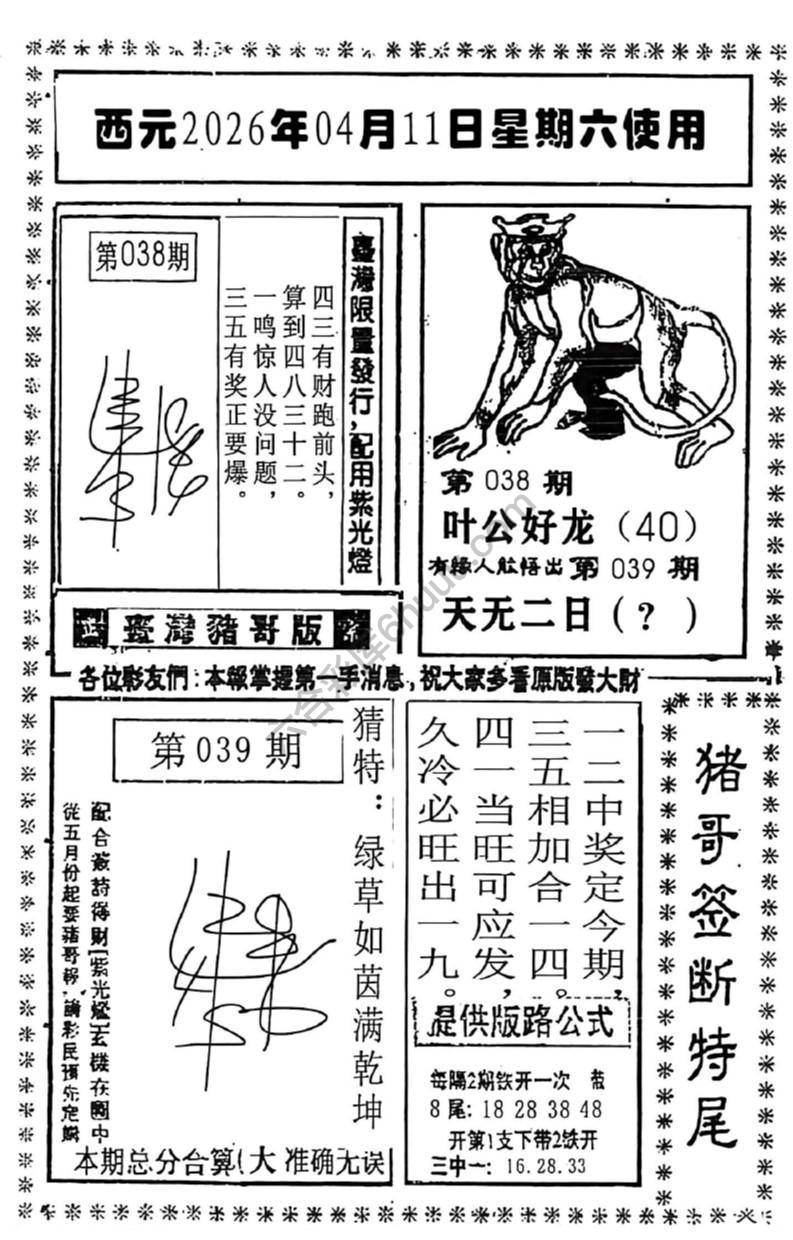 西元2026年04月11日星期六使用
第038期
臺灣限量發行,配用紫光燈
四三有财跑前头,
算到四八三十二。
一鸣惊人没问题,
三五有奖正要爆。
臺灣豬哥版
第 038 期
叶公好龙 (40)
有緣人能悟出 第 039 期
天无二日 (?)
各位彩友們:本報掌握第一手消息,祝大家多看原版發大財
第 039 期
猜特:绿草如茵满乾坤
配合簽詩得財(紫光燈)玄機在圖中
從五月份起要豬哥報,請彩民預先定購
本期总分合算(大 准确无误
一二中奖定今期,
三五相加合一四。
四一当旺可应发,
久冷必旺出一九。
提供版路公式
每隔2期铁开一次 带
8尾: 18 28 38 48
开第1支下带2铁开
三中一: 16.28.33
猪哥签断特尾
六合彩库6huuu.com